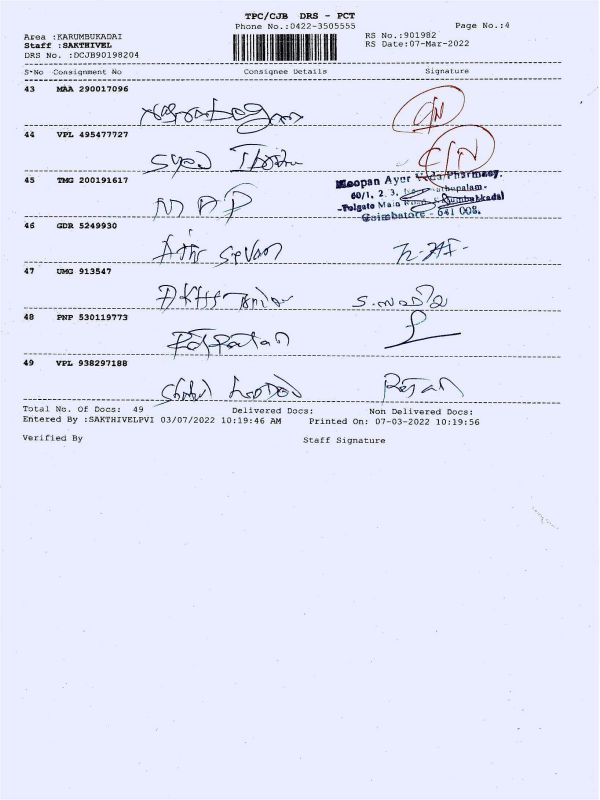 TPC/CJB DRS - PCT
Phone No.:0422-3505555
Page No.:4
Area :KARUMBUKADAI
RS No.:901982
Staff :SAKTHIVEL
RS Date:07-Mar-2022
DRS No. :DCJB90198204
S*No Consignment No Consignee Details Signature
43 MAA 290017096
44 VPL 495477727
Syed
45 TMG 200191617
Meopan Ayur Veda Pharmacy.
60/1, 2, 3,
-Polgate Main Road,
Coimbatore - 641 008.
46 GDR 5249930
47 UMG 913547
48 PNP 530119773
49 VPL 938297188
Total No. Of Docs: 49 Delivered Docs: Non Delivered Docs:
Entered By :SAKTHIVELPVI 03/07/2022 10:19:46 AM Printed On: 07-03-2022 10:19:56
Verified By Staff Signature